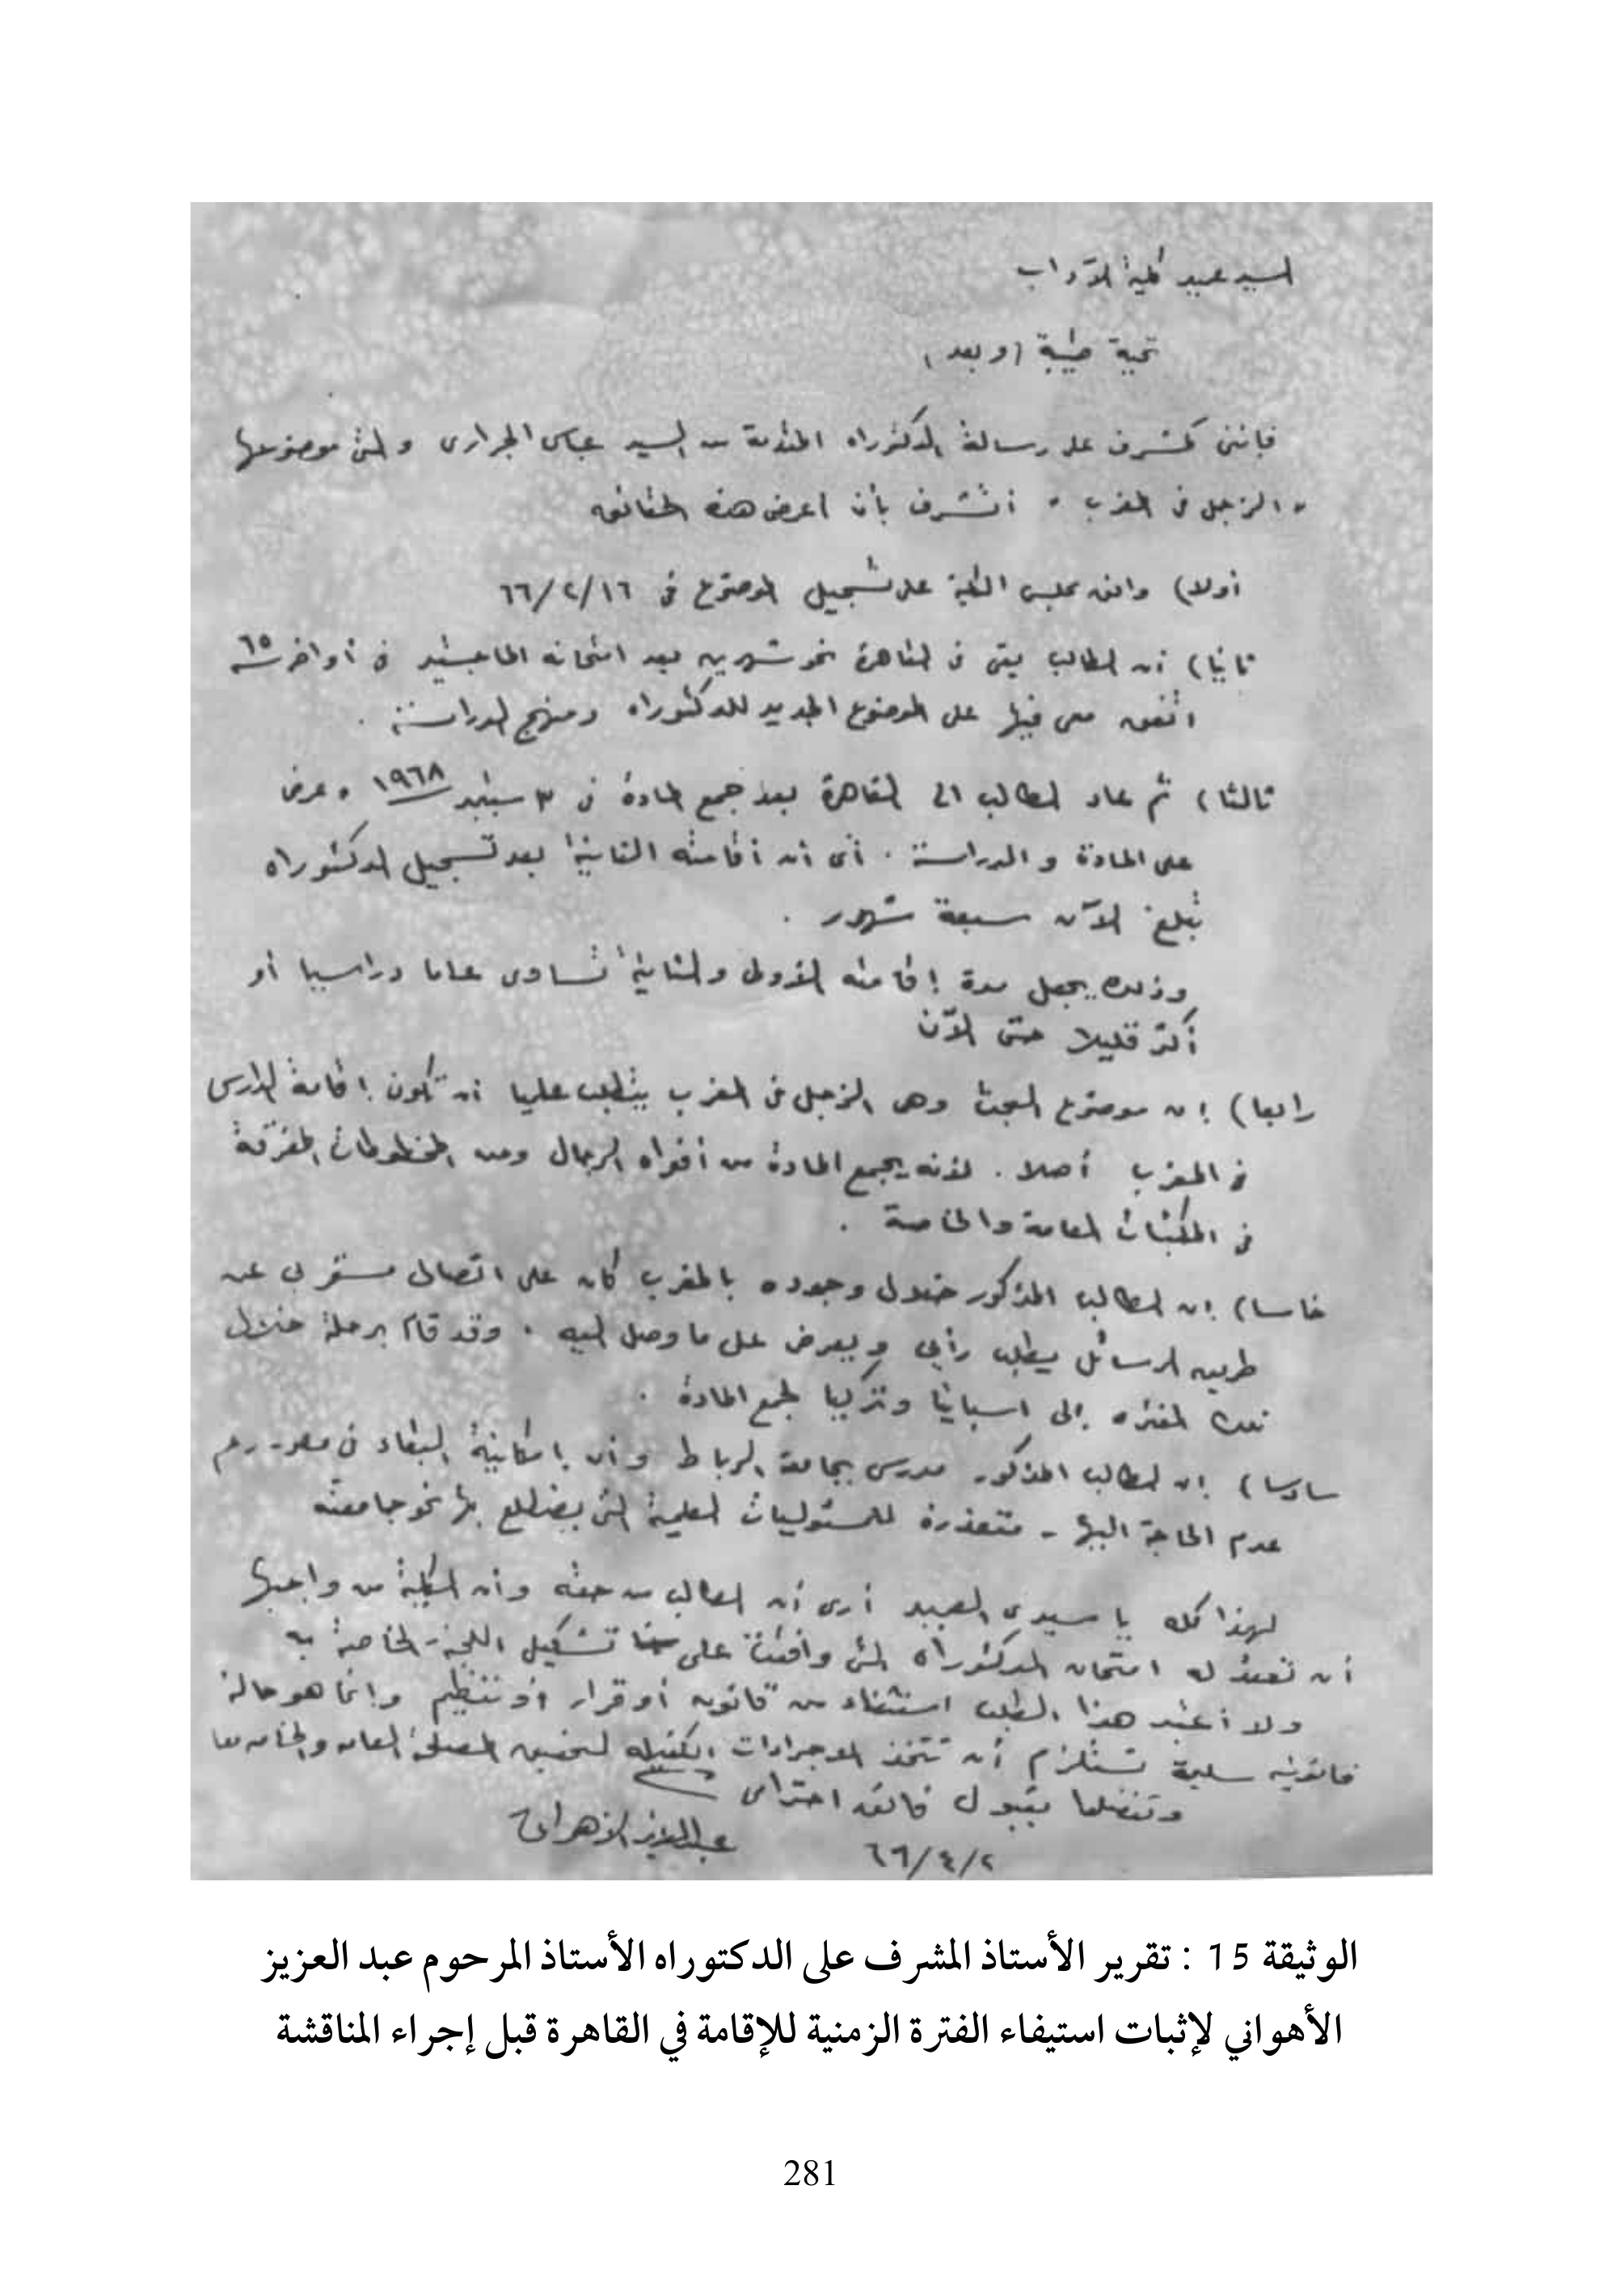 السيد عميد كلية الآداب
تحية طيبة (وبعد)
فإنني كمشرف على رسالة الدكتوراه المقدمة من السيد عباس الجراري والتي موضوعها
" الزجل في المغرب " أتشرف بأن أعرض هذه الحقائق
أولا) وافق مجلس الكلية على تسجيل الموضوع في ٦٦/٢/١٦
ثانيا) أن الطالب بقى في القاهرة نحو شهرين بعد امتحان الماجستير في أواخر سنة ٦٥
اتفق معى فيها على الموضوع الجديد للدكتوراه ومنهج الدراسة .
ثالثا) ثم عاد الطالب الى القاهرة بعد جمع المادة في ٣ سبتمبر ١٩٦٨ وعرض
على المادة والدراسة . أى أن أقامته الثانية بعد تسجيل الدكتوراه
تبلغ الآن سبعة شهور .
وذلك يجعل مدة إقامته الأولى والثانية تساوى عاما دراسيا أو
أكثر قليلا حتى الآن
رابعا) إن موضوع البحث وهى الزجل في المغرب يتطلب عليا أن تكون إقامة الدارس
في المغرب أصلا . لأنه يجمع المادة من أفواه الرجال ومن المخطوطات المفرقة
في المكتبات العامة والخاصة .
خامسا) إن الطالب المذكور خلال وجوده بالمغرب كان على اتصال مستمر بى عن
طريق الرسائل يطلب رأيى ويعرض على ما وصل إليه . وقد قام برحلة خلال
تلك الفتره إلى اسبانيا وتركيا لجمع المادة .
سادسا) إن الطالب المذكور مدرس بجامعة الرباط وأن إمكانية البقاء في مصر - رغم
عدم الحاجة اليها - متعذرة للمسئوليات العلمية التى يضطلع بها نحو جامعته
لهذا كله يا سيدى العميد أرى أن الطالب من حقه وأن الكلية من واجبها
أن تعقد له امتحان الدكتوراه التى وافقت على تشكيل اللجنة الخاصة به
ولا أعتبر هذا الطلب استثناء من قانون أو قرار أو تنظيم وإنما هو حالة
قانونيه سليمة تستلزم أن تتخذ الاجراءات الكفيله لتحقيق المصلحة العامه والخاصه معا
وتفضلوا بقبول فائق احترامى
عبد العزيز الأهوانى
٦٦/٤/٢
الوثيقة 15 : تقرير الأستاذ المشرف على الدكتوراه الأستاذ المرحوم عبد العزيز
الأهواني لإثبات استيفاء الفترة الزمنية للإقامة في القاهرة قبل إجراء المناقشة
281